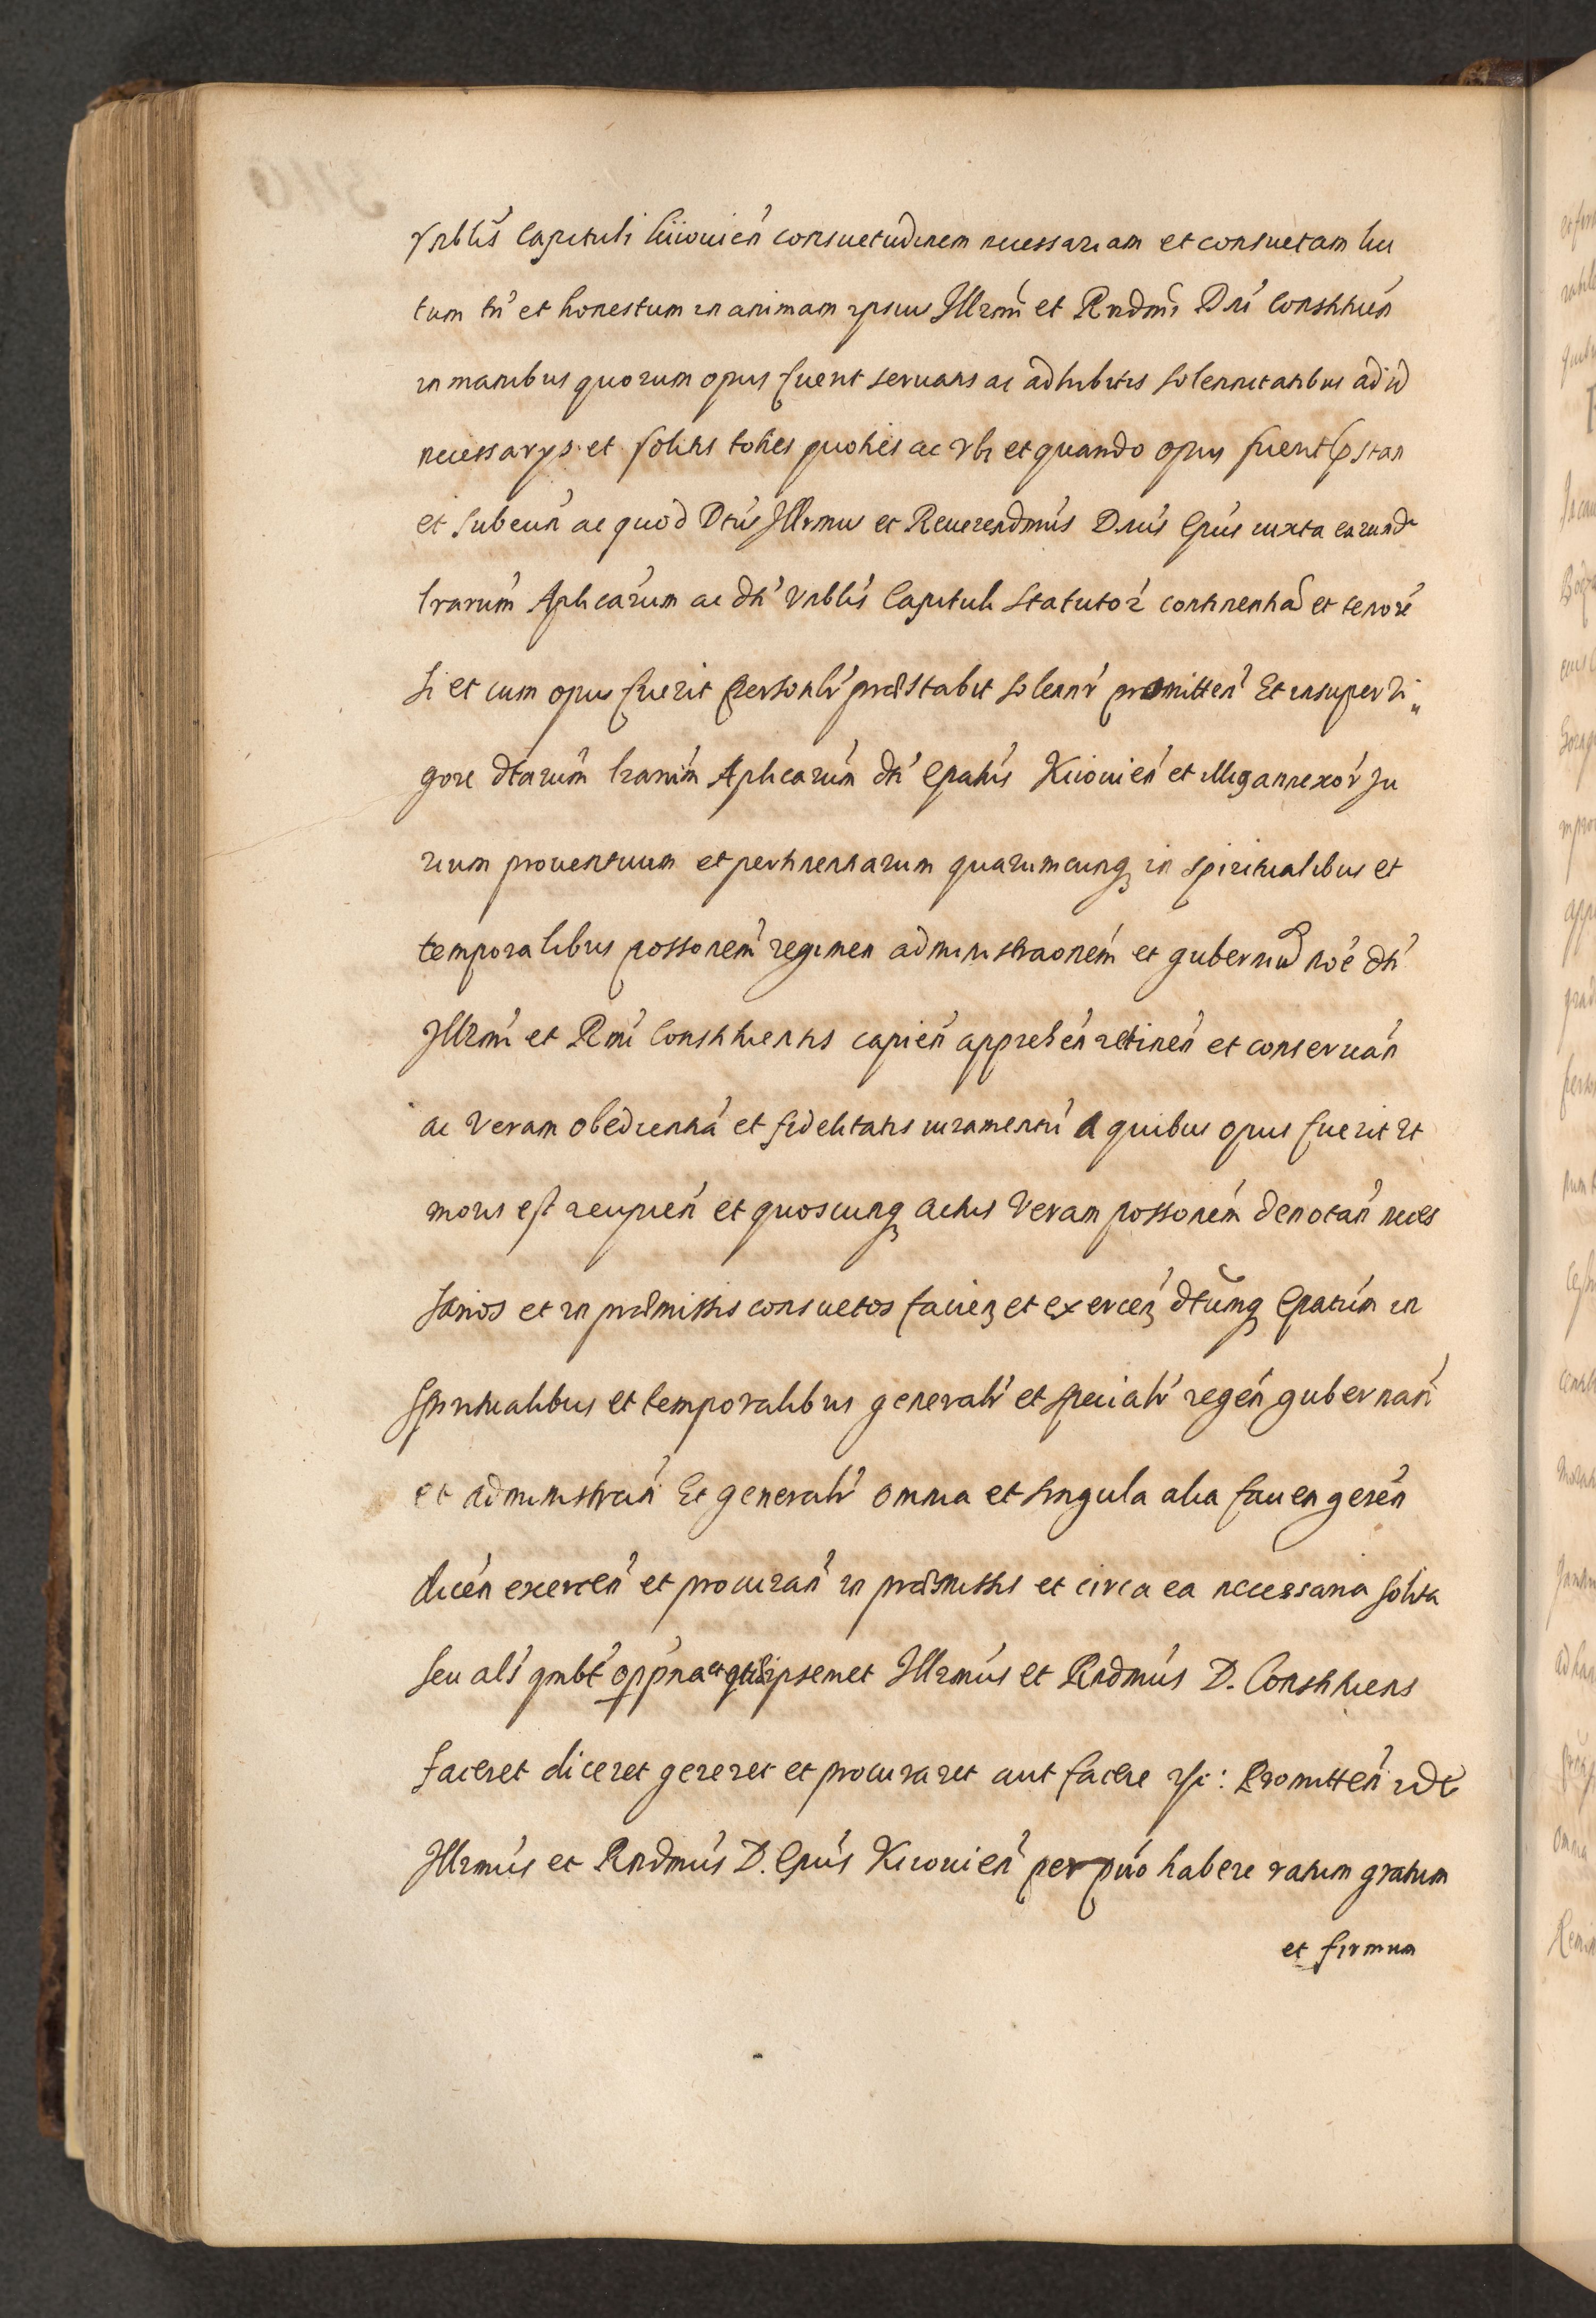 Vnblis Capituli Kiiouien consuetudinem necessariam et consuetam lici
tum tn et honestum in animam ipsius Illrmi et Rndmi Dni Constituen
in manibus quorum opus fuerit seruatis ac adhibitis solennitatibus ad id
necessarys et solitis toties quoties ac vbi et quando opus fuerit pstan
et subeun ac quod Dtus Illrmus et Reuerendmus Dnus Epus iuxta earund
lrarum Aplicarum ac dti Vnblis Capituli Statutor continentia et tenore
si et cum opus fuerit personlr præstabit solennr promitten Et insuper vi
gore dtarum lrarum Aplicarum dti Epatus Kiiouien et illiq annexor Ju
rium prouentuum et pertinentiarum quarumcunq in spiritualibus et
temporalibus possonem regimen administraonem et guberniu noe dti
Illrmi et Rmi Constituentis capien apprehen retinen et conseruan
ac veram obedientia et fidelitatis iuramentu a quibus opus fuerit et
moris est recipien et quoscunq actus veram possonem denotan neces
sarios et in præmissis consuetos facien et exercen dtumq Epatum in
Spiritualibus et temporalibus generalr et specialr regen gubernan
et administran Et generalr omnia et singula alia facien geren
dicen exercen et procuran in præmissis et circa ea necessaria solita
seu als qmbt oppna et ipsemet Illrmus et Rndmus D. Constituens
faceret diceret gereret et procuraret aut facere : Promitten idt
Illrmus et Rndmus D. Epus Kiouien perpuo habere ratum gratum
et firmum